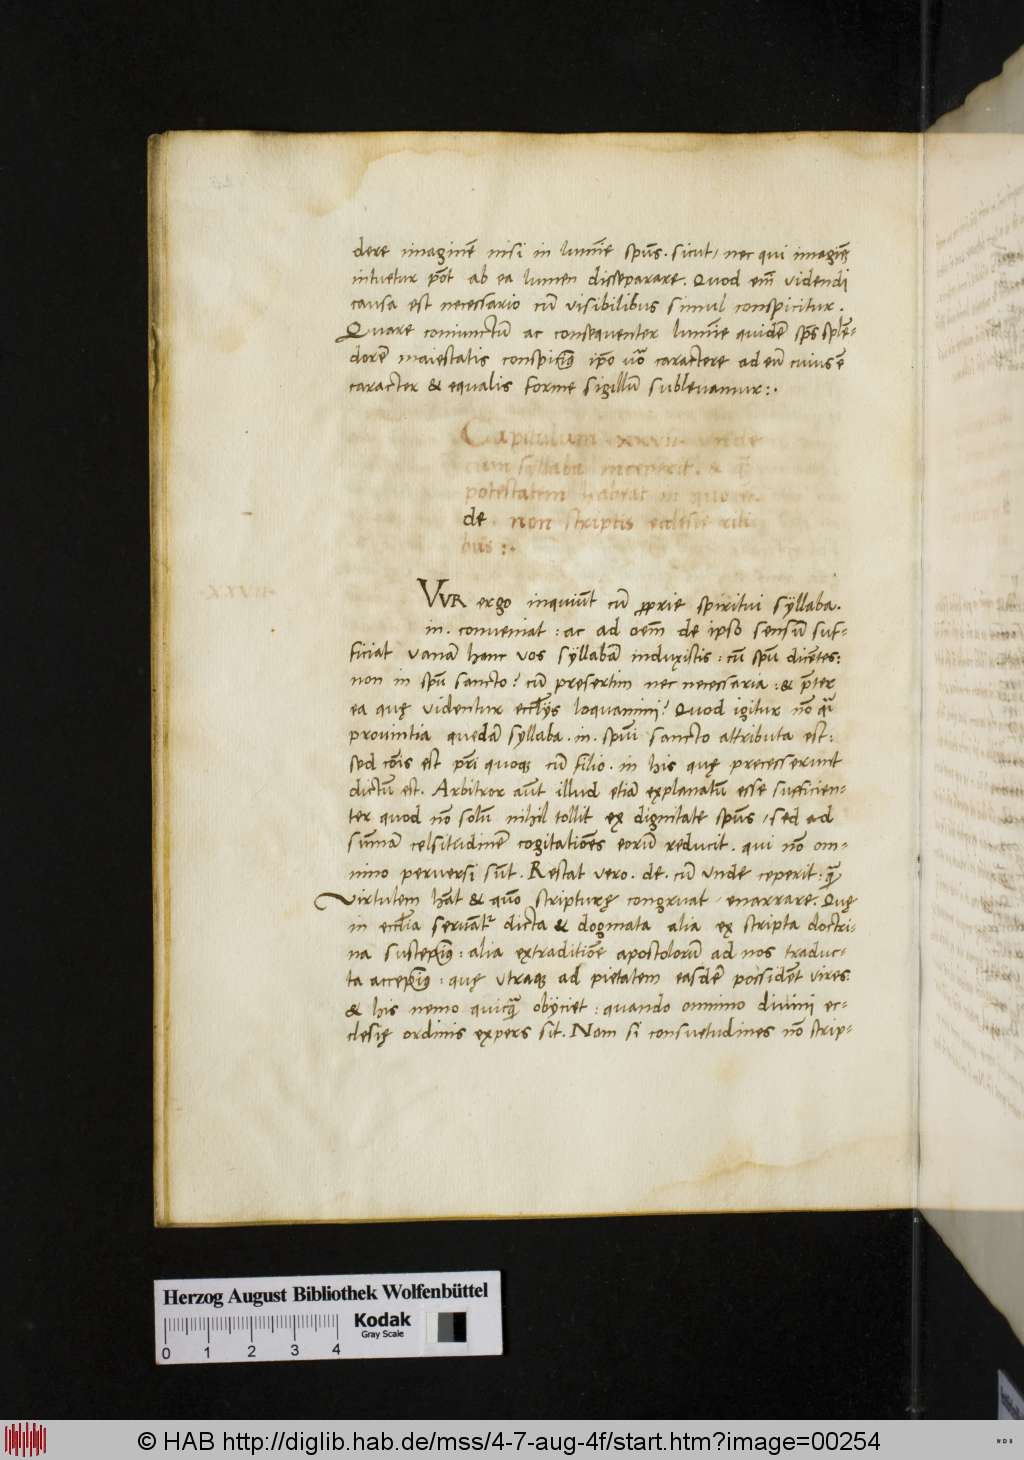 dere imaginē nisi in lumīe spūs. sicut, nec qui imaginē
intuetur pōt ab ea lumen disseparare. Quod em̄ videndi
causa est necessario cū visibilibus simul conspicitur.
Quare coniunctū ac consequenter lumīe quidē spūs splē-
dorē maiestatis conspicimꝰ ipo uō caractere ad eū cuius ē
caracter & equalis forme sigillū sublevamur:.
Capitulum xxvii unde
cum syllaba inceperit. &
potestatem habeat
de. non scriptis eclesie riti
bus :.
XXVII.
VVR ergo inquiūt cū ꝓprie spiritui syllaba.
in. conveniat : ac ad oem̄ de ipso sensū suf-
ficiat vanā hanc vos syllabā induxistis : cū spū dicētes:
non in spū sancto? cū presertim nec necessaria : & p̄ter
ea quę videntur eccl̄ijs loquamini? Quod igitur nō qa
provintia quedā syllaba. in. spūi sancto attributa est:
sed cōis est pr̄i quoqꝫ cū filio. in his quę precesserunt
dictū est. Arbitror aūt illud etiā explanatū esse sufficien-
ter quod nō solū nihil tollit ex dignitate spūs, sed ad
sūmā celsitudinē cogitatiōes eorū reducit. qui nō om-
nino perversi sūt. Restat vero. de. cū vnde ceperit : quā
virtutem hāt & quō scripturę congruat, enarrare. Quę
in eccl̄ia servāt² dicta & dogmata alia ex scripta doctri-
na suscepimꝰ : alia extraditiōe apostolorū ad nos traduc-
ta accepimꝰ : quę vtraqꝫ ad pietatem easdē possidēt vires.
& his nemo quicq̄ obijciet : quando omnino divini ec-
clesię ordinis expers sit. Nam si consuetudines nō scrip-
Herzog August Bibliothek Wolfenbüttel
Kodak
Gray Scale
0 1 2 3 4
© HAB http://diglib.hab.de/mss/4-7-aug-4f/start.htm?image=00254